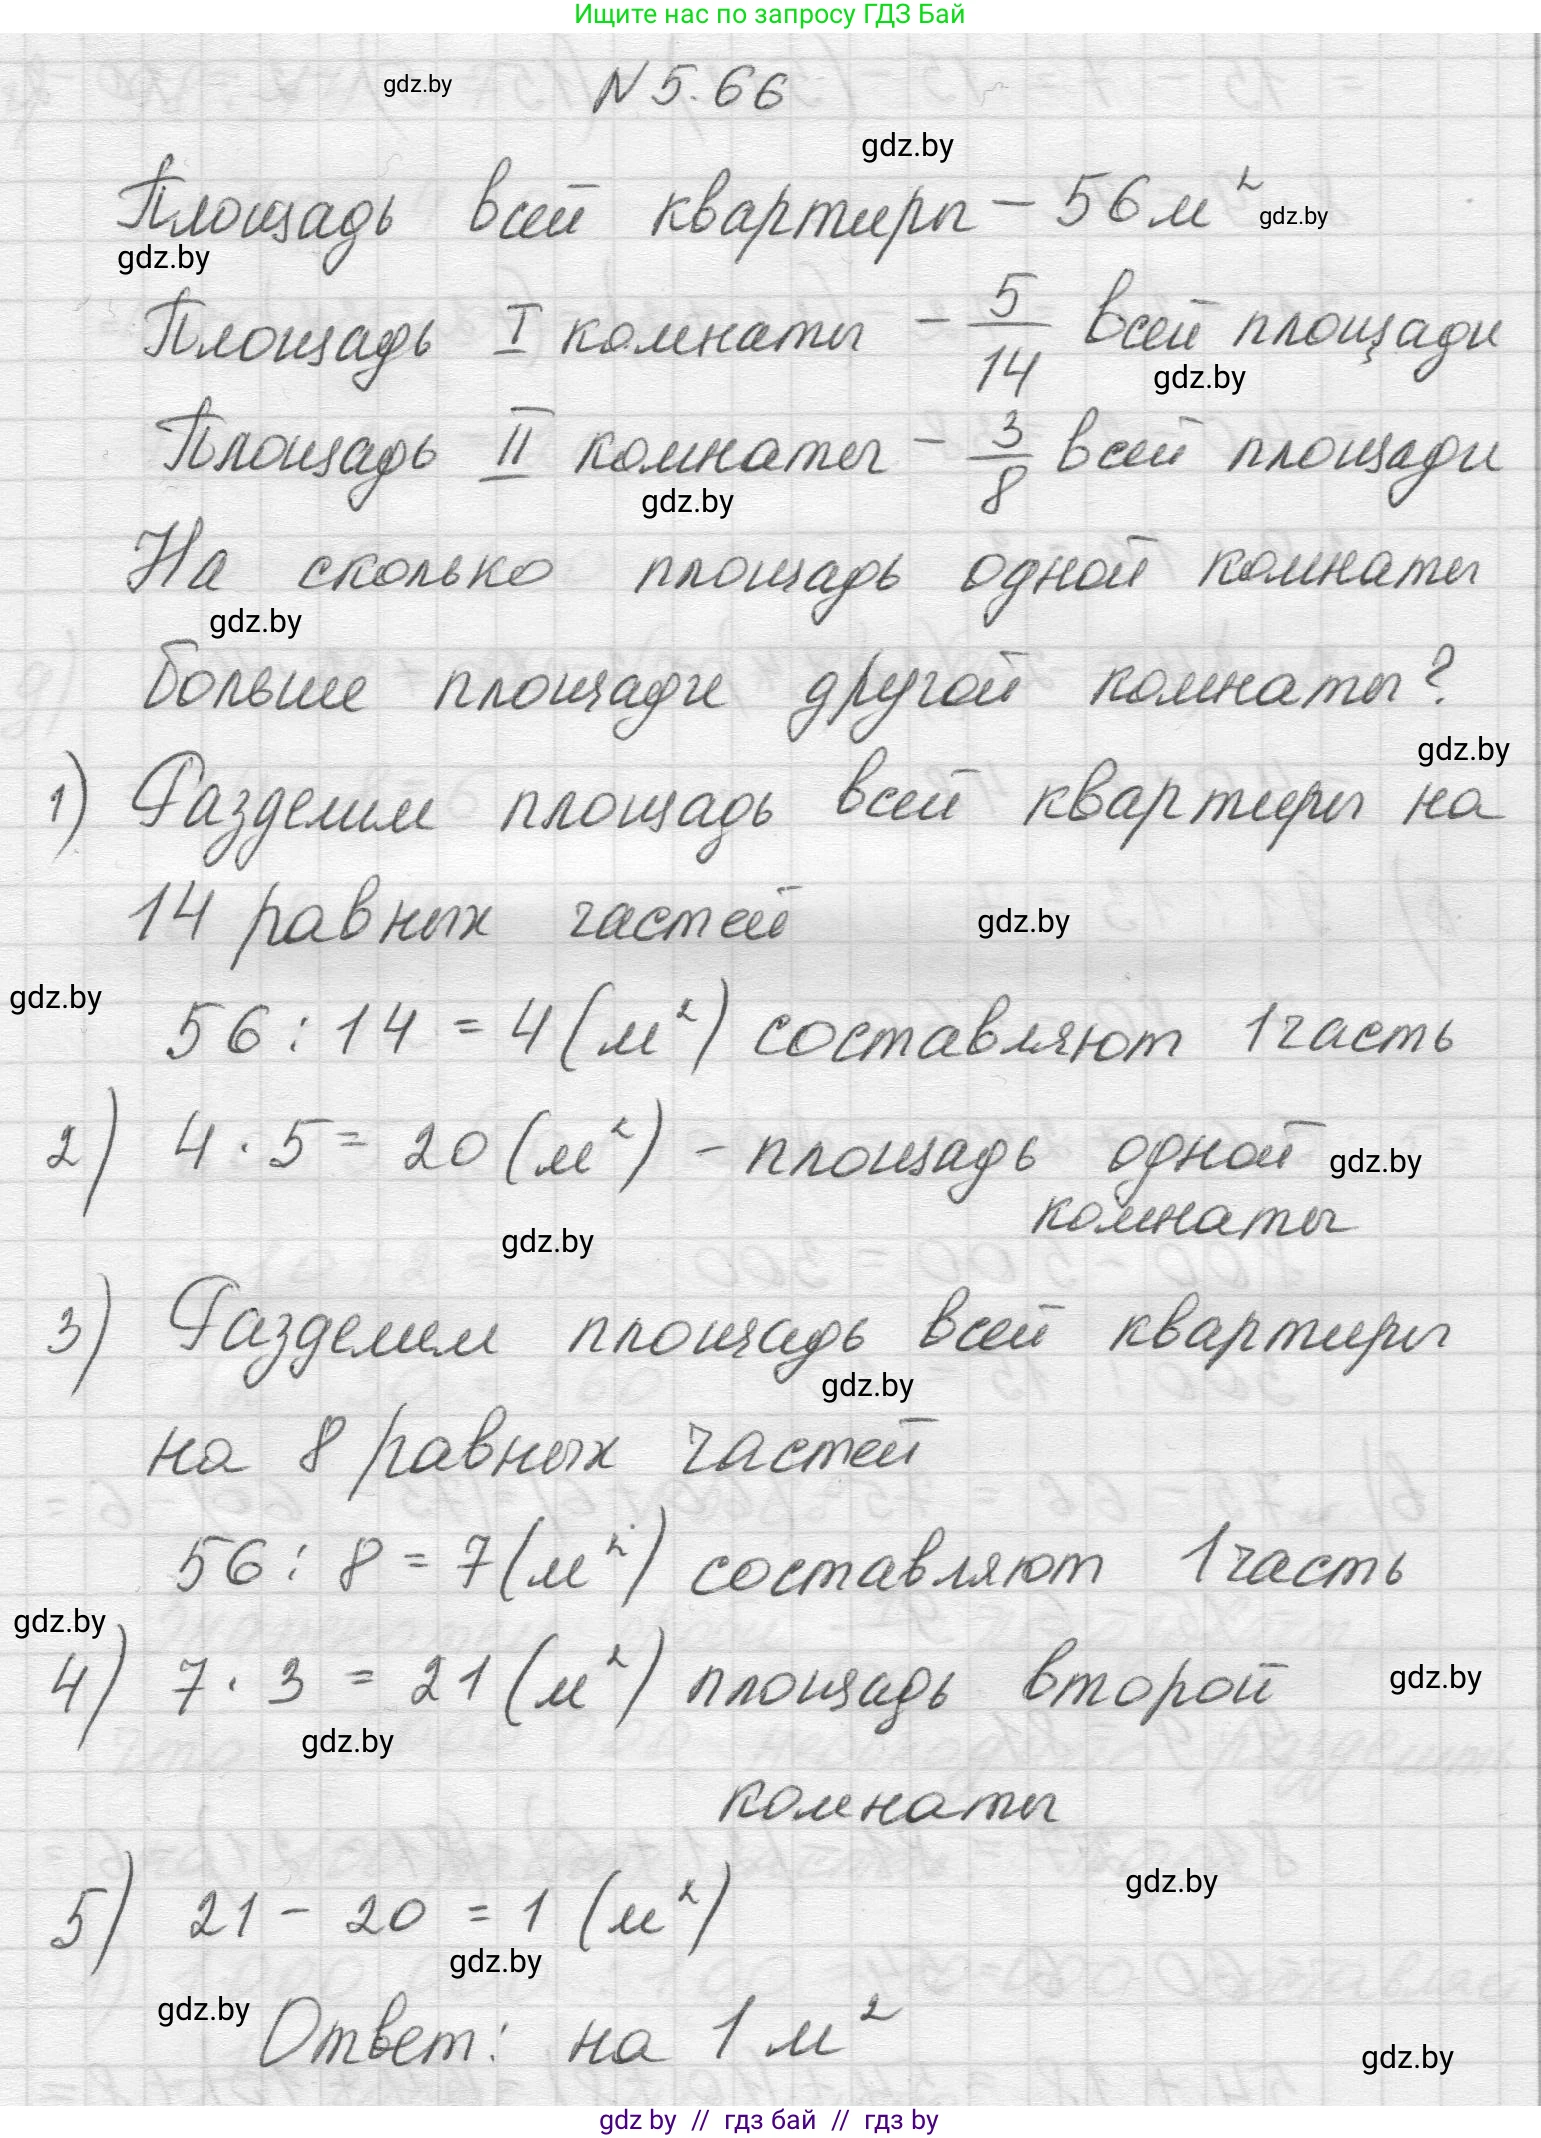 Ищите нас по запросу ГДЗ Бай
gdz.by
N 5.66
gdz.by
Площадь всей квартиры – 56 м²
gdz.by
gdz.by
Площадь I комнаты – 5/14 всей площади
gdz.by
Площадь II комнаты – 3/8 всей площади
gdz.by
На сколько площадь одной комнаты
gdz.by
больше площади другой комнаты?
gdz.by
1) Разделим площадь всей квартиры на
14 равных частей
gdz.by
gdz.by
56 : 14 = 4 (м²) составляют 1 часть
2) 4 · 5 = 20 (м²) – площадь одной
gdz.by
комнаты
gdz.by
3) Разделим площадь всей квартиры
gdz.by
на 8 равных частей
56 : 8 = 7 (м²) составляют 1 часть
gdz.by
4) 7 · 3 = 21 (м²) площадь второй
gdz.by
gdz.by
комнаты
gdz.by
5) 21 – 20 = 1 (м²)
gdz.by
gdz.by
Ответ: на 1 м²
gdz.by
gdz by // гдз бай // гдз by